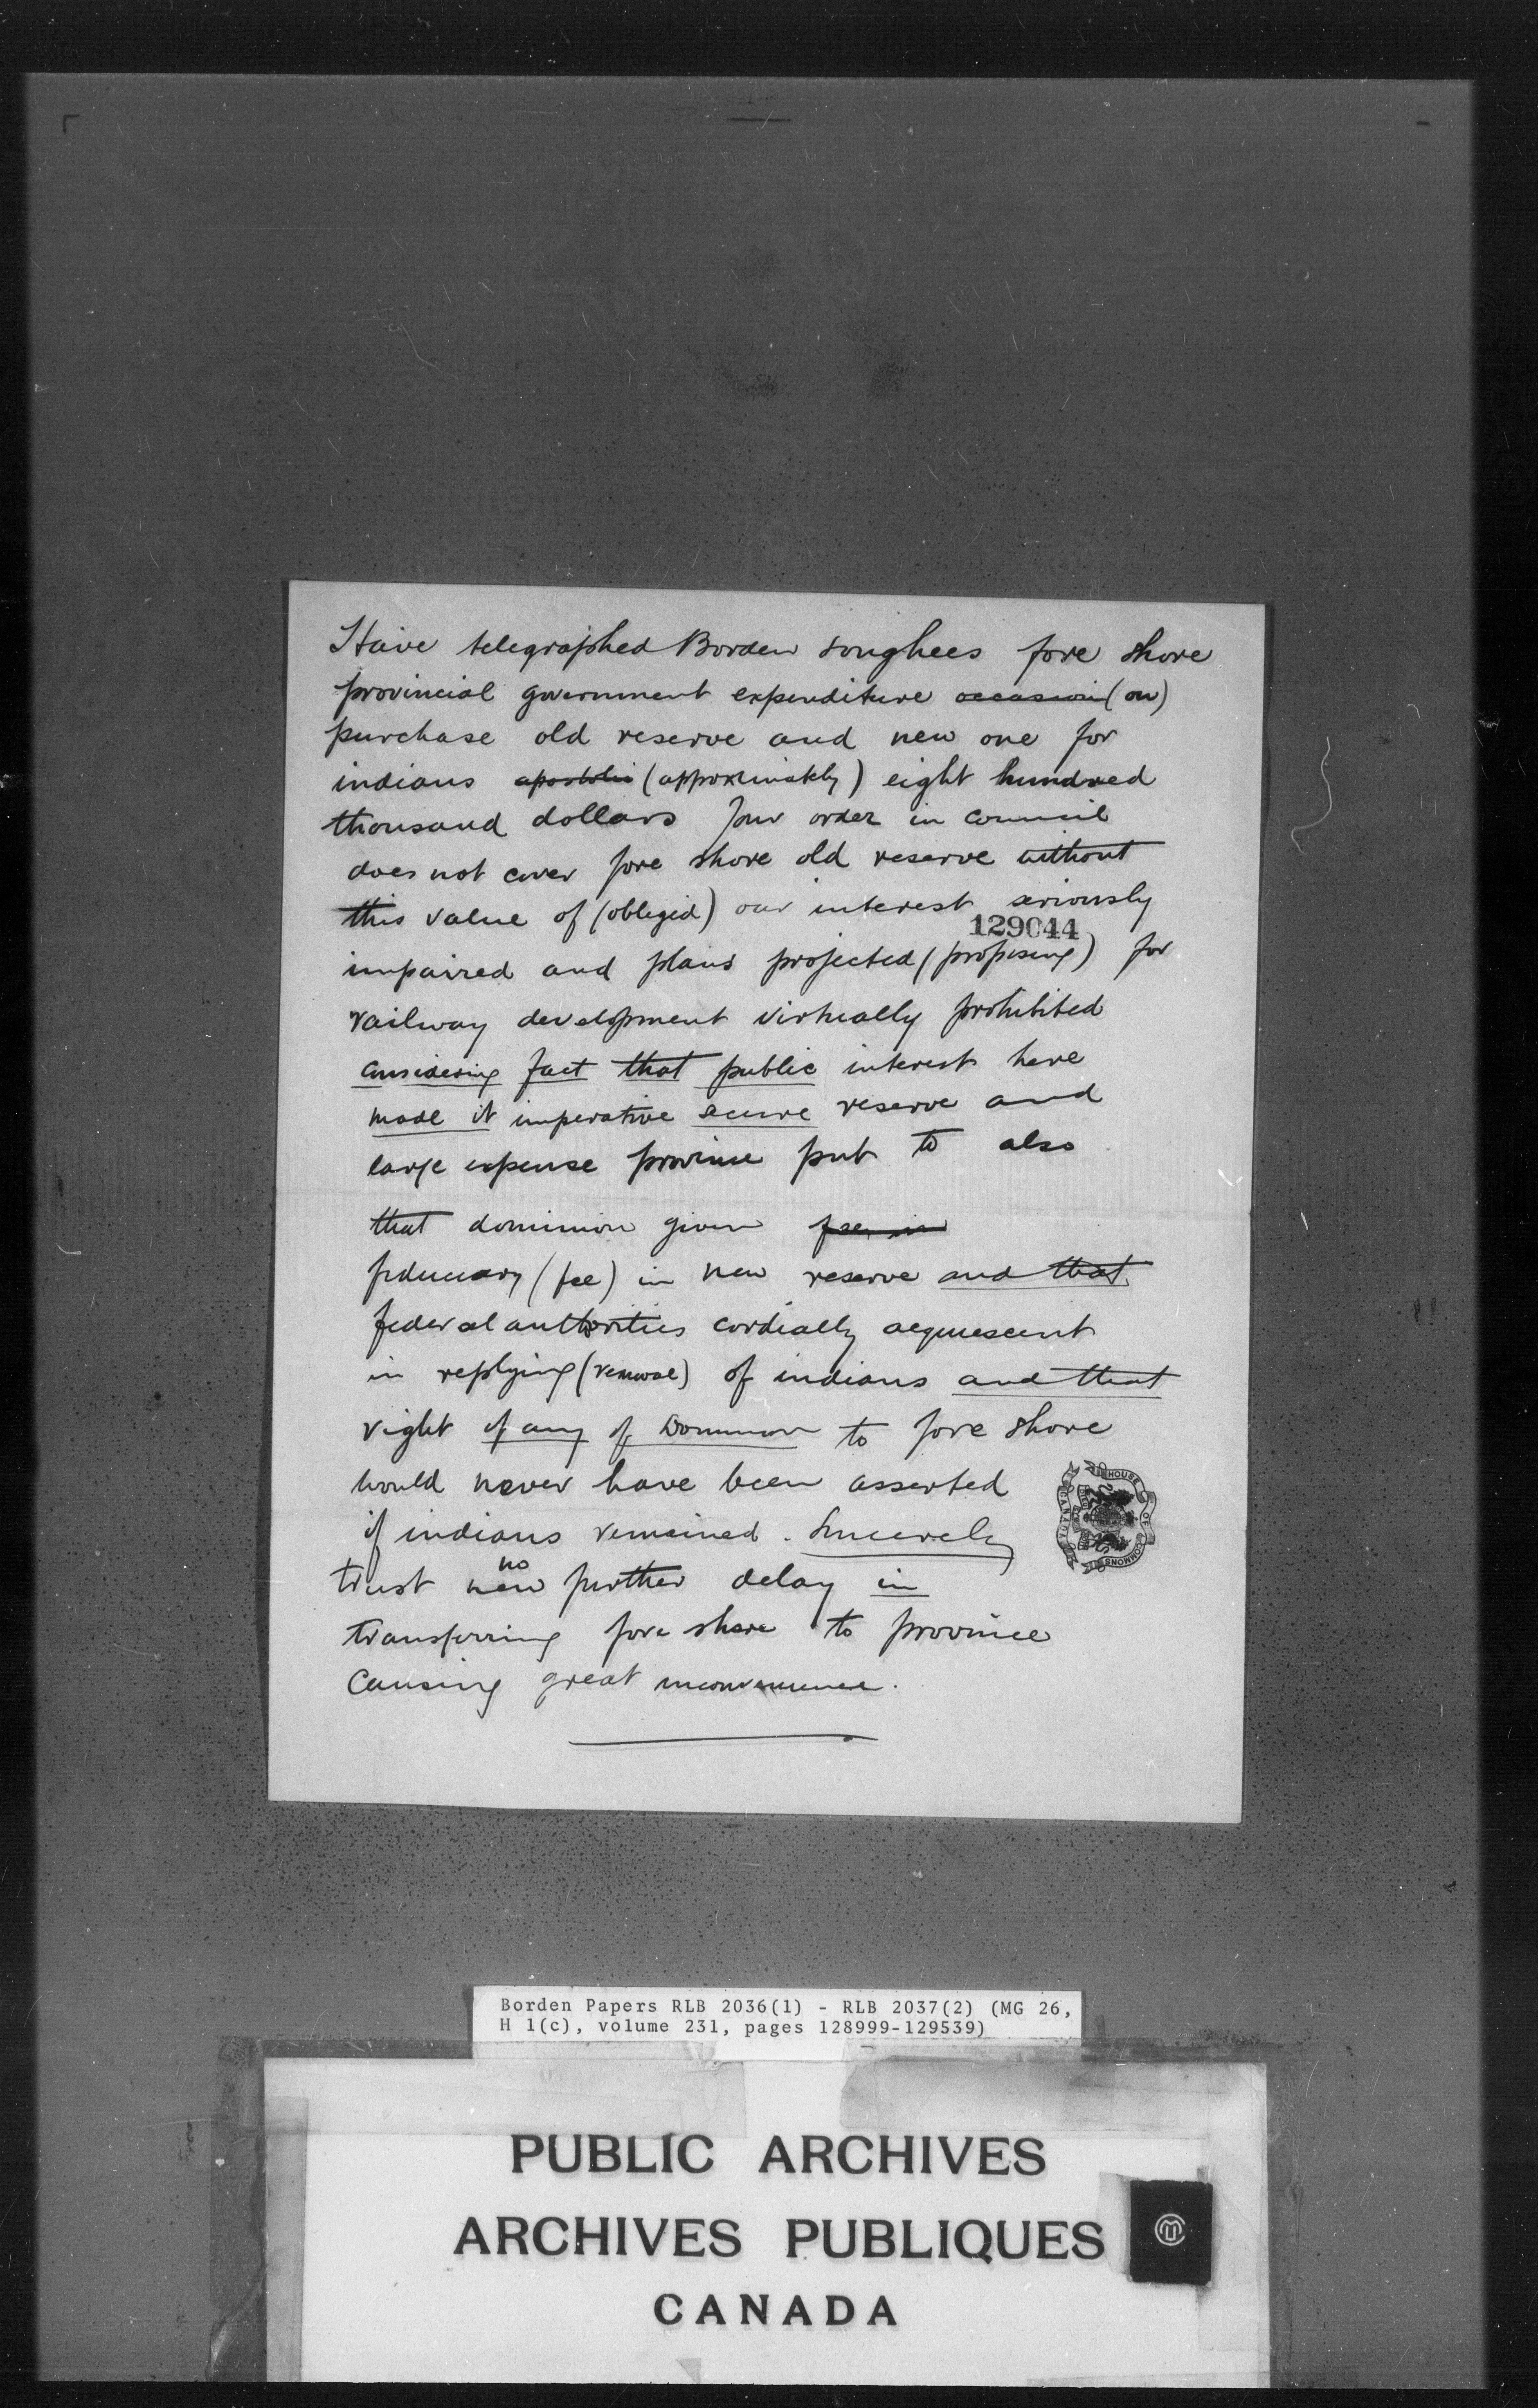 Have telegraphed Borden songhees fore shore
provincial government expenditure occasion (on)
purchase old reserve and new one for
indians apostolic (approximately) eight hundred
thousand dollars your order in council
does not cover fore shore old reserve without
this value of (obliged) our interest seriously
129044
impaired and plans projected (proposing) for
railway development virtually prohibited
considering fact that public interest here
made it imperative secure reserve and
large expense province put to also
that dominion given
fiduciary (fee) in new reserve and that
federal authorities cordially acquiescent
in replying (removal) of indians and that
right if any of Dominion to fore shore
would never have been asserted
if indians remained. Sincerely
no
trust new further delay in
transferring fore shore to province
causing great inconvenience.
HOUSE OF COMMONS CANADA
Borden Papers RLB 2036(1) - RLB 2037(2) (MG 26,
H 1(c), volume 231, pages 128999-129539)
PUBLIC ARCHIVES
ARCHIVES PUBLIQUES
CANADA